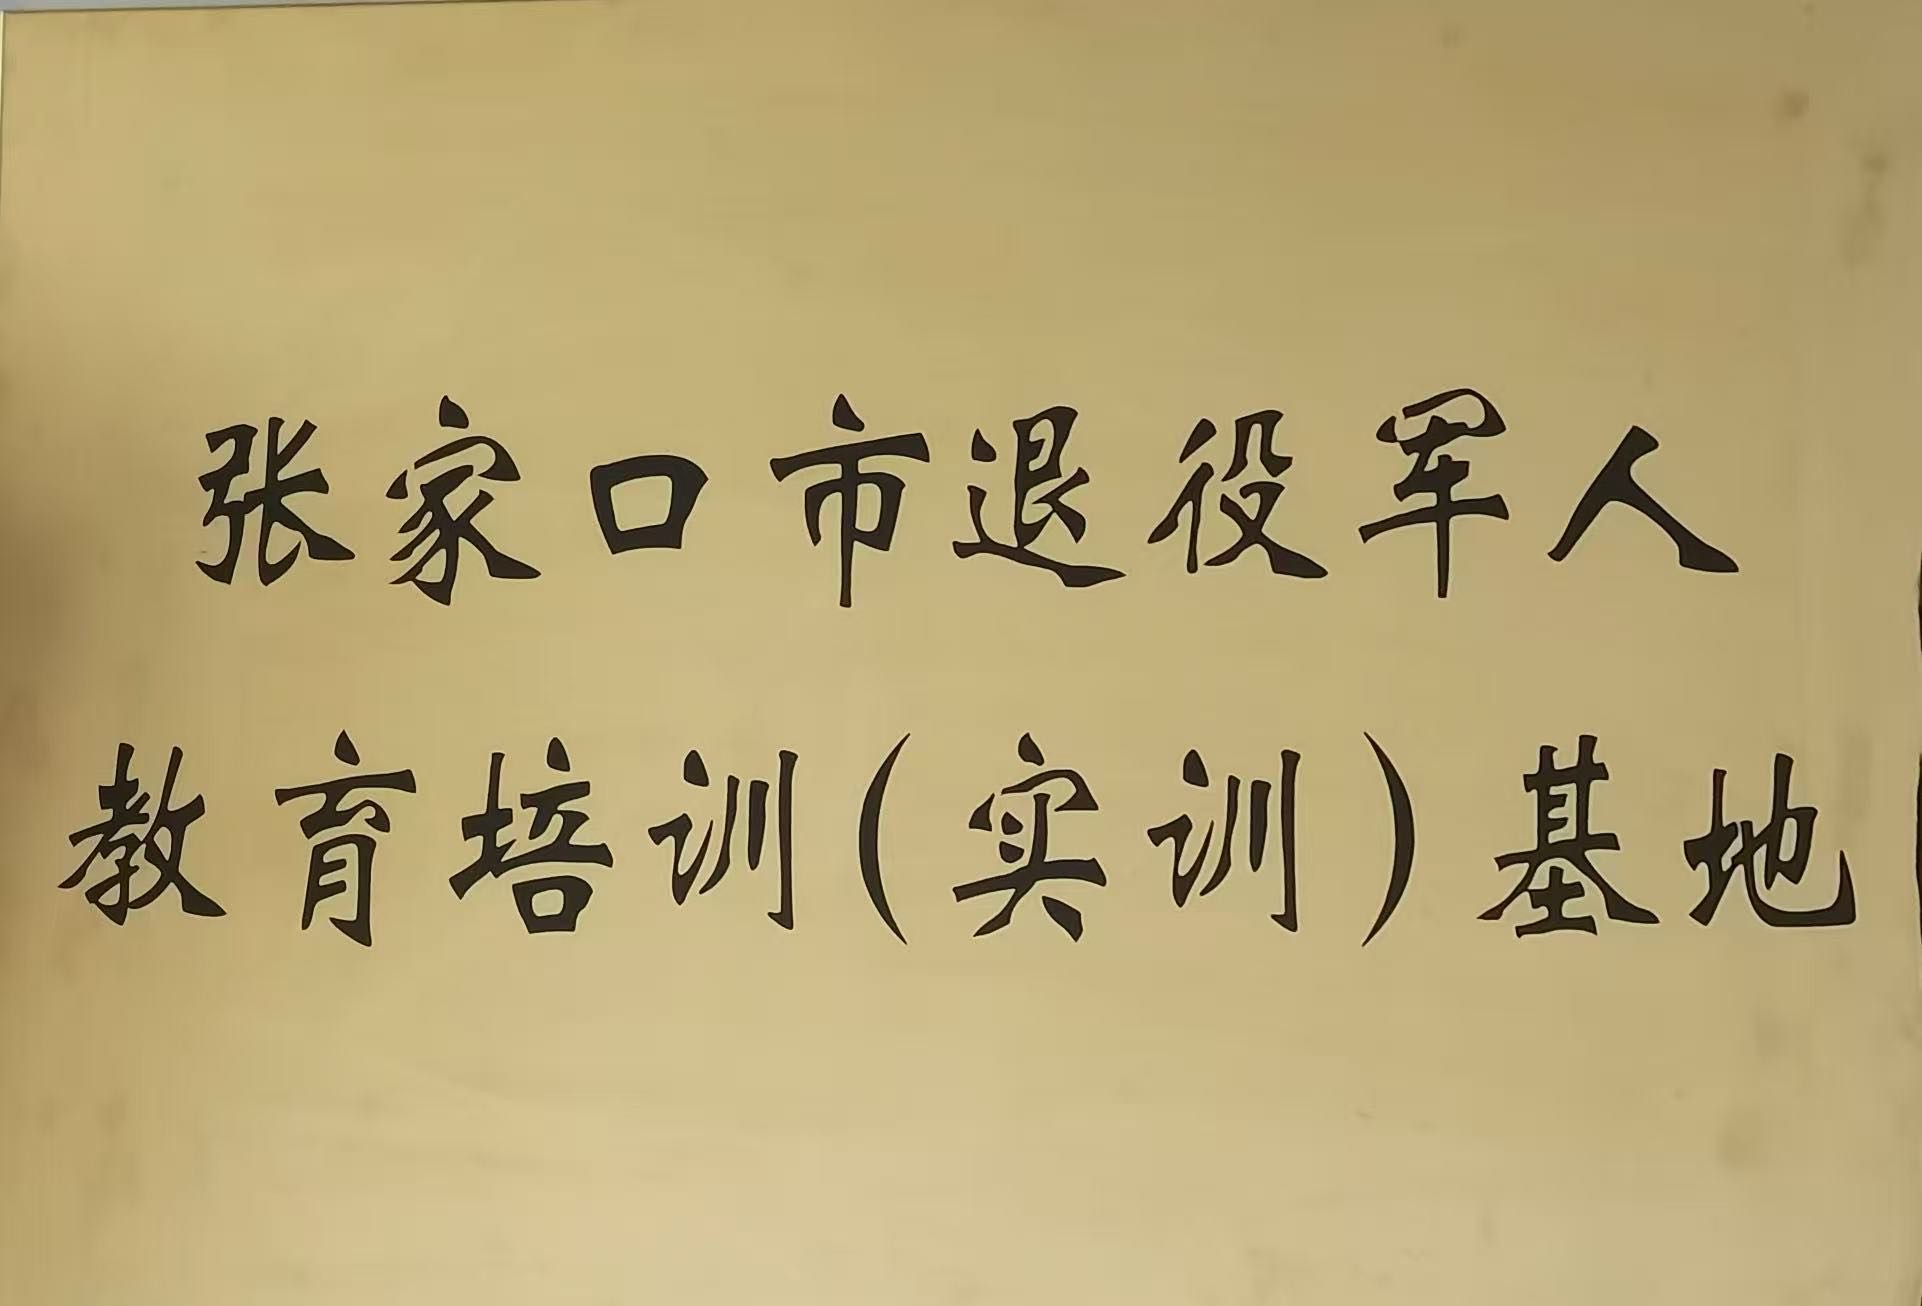 张家口市退役军人
教育培训(实训)基地